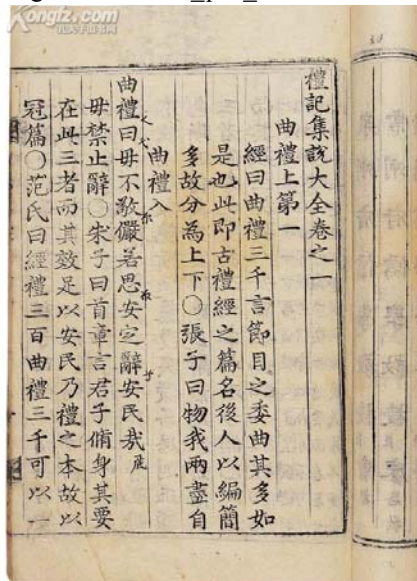 禮記集說大全卷之一
曲禮上第一
經曰曲禮三千言節目之委曲其多如
是也此即古禮經之篇名後人以編簡
多故分為上下○張子曰物我兩盡自
曲禮入
曲禮曰毋不敬儼若思安定辭安民哉
毋禁止辭○朱子曰首章言君子脩身其要
在此三者而其效足以安民乃禮之本故以
冠篇○范氏曰經禮三百曲禮三千可以一
Kongfz.com